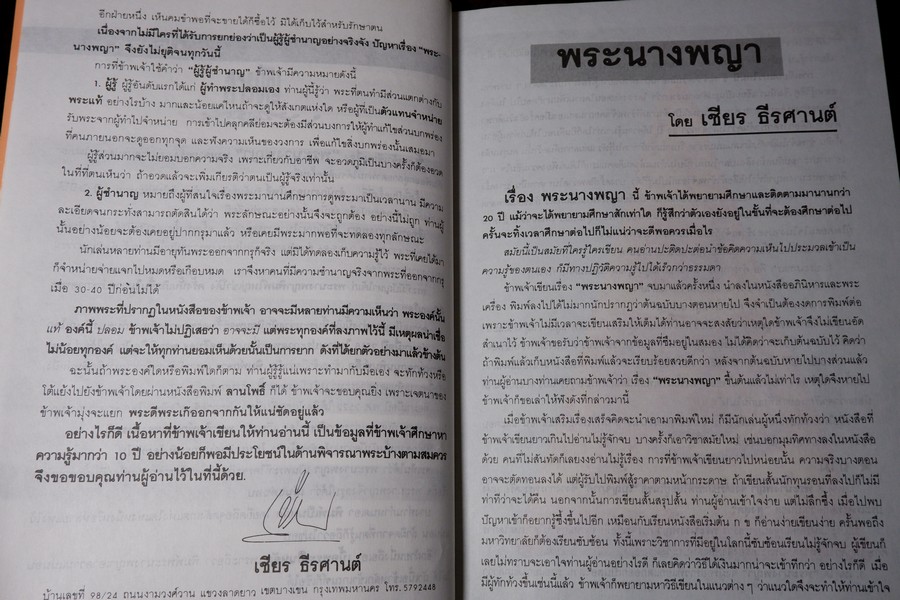 อีกฝ่ายหนึ่ง เห็นคมขำพอที่จะขายได้ก็ซื้อไว้ มิได้เก็บไว้สำหรับรักษาตน
เนื่องจากไม่มีใครที่ได้รับการยกย่องว่าเป็นผู้รู้ผู้ชำนาญอย่างจริงจัง ปัญหาเรื่อง "พระ-
นางพญา" จึงยังไม่ยุติจนทุกวันนี้
การที่ข้าพเจ้าใช้คำว่า "ผู้รู้ผู้ชำนาญ" ข้าพเจ้ามีความหมายดังนี้
1. ผู้รู้ ผู้รู้อันดับแรกได้แก่ ผู้ทำพระปลอมเอง ท่านผู้นี้รู้ว่า พระที่ตนทำมีส่วนแตกต่างกับ
พระแท้ อย่างไรบ้าง มากและน้อยแค่ไหนถ้าจะดูให้สังเกตแห่งใด หรือผู้ที่เป็นตัวแทนจำหน่าย
รับพระจากผู้ทำไปจำหน่าย การเข้าไปคลุกคลีย่อมจะต้องมีส่วนบงการให้ผู้ทำแก้ไขส่วนบกพร่อง
ที่คนภายนอกจะดูออกทุกจุด และฟังความเห็นของวงการ เพื่อแก้ไขสิ่งบกพร่องนั้นเสมอมา
ผู้รู้ส่วนมากจะไม่ยอมบอกความจริง เพราะเกี่ยวกับอาชีพ จะอวดภูมิเป็นบางครั้งก็ต้องอวด
ในที่ที่ตนเห็นว่า ถ้าอวดแล้วจะเพิ่มเกียรติว่าตนเป็นผู้รู้จริงเท่านั้น
2. ผู้ชำนาญ หมายถึงผู้ที่สนใจเรื่องพระมานานศึกษาการดูพระมาเป็นเวลานาน มีความ
ละเอียดจนกระทั่งสามารถตัดสินได้ว่า พระลักษณะอย่างนั้นจึงจะถูกต้อง อย่างนี้ไม่ถูก ท่านผู้
นั้นอย่างน้อยจะต้องเคยอยู่ปากกรุมาแล้ว หรือเคยมีพระมากพอที่จะทดลองทุกลักษณะ
นักเล่นหลายท่านมีอายุทันพระออกจากกรุก็จริง แต่มิได้ทดลองเก็บความรู้ไว้ พระที่เคยได้มา
ก็จำหน่ายจ่ายแจกไปหมดหรือเกือบหมด เราจึงหาคนที่มีความชำนาญจริงจากพระที่ออกจากกรุ
เมื่อ 30-40 ปีก่อนไม่ได้
ภาพพระที่ปรากฏในหนังสือของข้าพเจ้า อาจจะมีหลายท่านมีความเห็นว่า พระองค์นั้น
แท้ องค์นี้ ปลอม ข้าพเจ้าไม่ปฏิเสธว่า อาจจะมี แต่พระทุกองค์ที่ลงภาพไว้นี้ มีเหตุผลน่าเชื่อ
ไม่น้อยทุกองค์ แต่จะให้ทุกท่านยอมเห็นด้วยนั้นเป็นการยาก ดังที่ได้ยกตัวอย่างมาแล้วข้างต้น
ฉะนั้นถ้าพระองค์ใดหรือพิมพ์ใดก็ตาม ท่านผู้รู้รู้แน่เพราะทำมากับมือเอง จะทักท้วงหรือ
โต้แย้งไปยังข้าพเจ้าโดยผ่านหนังสือพิมพ์ ลานโพธิ์ ก็ได้ ข้าพเจ้าจะขอบคุณยิ่ง เพราะเจตนาของ
ข้าพเจ้ามุ่งจะแยก พระดีพระเก๊ออกจากกันให้แน่ชัดอยู่แล้ว
อย่างไรก็ดี เนื้อหาที่ข้าพเจ้าเขียนให้ท่านอ่านนี้ เป็นข้อมูลที่ข้าพเจ้าศึกษาหา
ความรู้มากว่า 10 ปี อย่างน้อยก็พอมีประโยชน์ในด้านพิจารณาพระบ้างตามสมควร
จึงขอขอบคุณท่านผู้อ่านไว้ในที่นี้ด้วย.
เชียร ธีรศานต์
บ้านเลขที่ 98/24 ถนนงามวงศ์วาน แขวงลาดยาว เขตบางเขน กรุงเทพมหานคร โทร. 5792448
พระนางพญา
โดย เชียร ธีรศานต์
เรื่อง พระนางพญา นี้ ข้าพเจ้าได้พยายามศึกษาและติดตามมานานกว่า
20 ปี แม้ว่าจะได้พยายามศึกษาสักเท่าใด ก็รู้สึกว่าตัวเองยังอยู่ในชั้นที่จะต้องศึกษาต่อไป
ครั้นจะทิ้งเวลาศึกษาต่อไปก็ไม่แน่ว่าจะดีพอควรเมื่อไร
สมัยนี้เป็นสมัยที่ใครรู้ใครเขียน คนอ่านปะติดปะต่อนำข้อคิดความเห็นไปประมวลเข้าเป็น
ความรู้ของตนเอง ก็มีทางปฏิวัติความรู้ไปได้เร็วกว่าธรรมดา
ข้าพเจ้าเขียนเรื่อง "พระนางพญา" จบมาแล้วครั้งหนึ่ง นำลงในหนังสืออภินิหารและพระ
เครื่อง พิมพ์ลงไปได้ไม่มากนักปรากฏว่าต้นฉบับบางตอนหายไป จึงจำเป็นต้องงดการพิมพ์ต่อ
เพราะข้าพเจ้าไม่มีเวลาจะเขียนเสริมให้เต็มได้ท่านอาจจะสงสัยว่าเหตุใดข้าพเจ้าจึงไม่เขียนอัด
สำเนาไว้ ข้าพเจ้าขอรับว่าข้าพเจ้าจากข้อมูลที่ซึมอยู่ในสมอง ไม่ได้คิดว่าจะเก็บต้นฉบับไว้ คิดว่า
ถ้าพิมพ์แล้วเก็บหนังสือที่พิมพ์แล้วจะเรียบร้อยสวยดีกว่า หลังจากต้นฉบับหายไปบางส่วนแล้ว
ท่านผู้อ่านบางท่านเคยถามข้าพเจ้าว่า เรื่อง "พระนางพญา" ขึ้นต้นแล้วไม่เท่าไร เหตุใดจึงหายไป
ข้าพเจ้าก็ขอเล่าให้ฟังดังที่กล่าวมานี้
เมื่อข้าพเจ้าเสริมเรื่องเสร็จคิดจะนำเอามาพิมพ์ใหม่ ก็มีนักเล่นผู้หนึ่งทักท้วงว่า หนังสือที่
ข้าพเจ้าเขียนยาวเกินไปอ่านไม่รู้จักจบ บางครั้งก็เอาวิชาสมัยใหม่ เช่นบอกมุมทิศทางลงในหนังสือ
ด้วย คนที่ไม่สันทัดก็เลยงงอ่านไม่รู้เรื่อง การที่ข้าพเจ้าเขียนยาวไปหน่อยนั้น ความจริงบางตอน
อาจจะตัดทอนลงได้ แต่ผู้รับไปพิมพ์สู้ราคาตามหน้ากระดาษ ถ้าเขียนสั้นนักทุนรอนที่ลงไปก็ไม่มี
ท่าทีว่าจะได้คืน นอกจากนั้นการเขียนสั้นสรุปสั้น ท่านผู้อ่านเข้าใจง่าย แต่ไม่ลึกซึ้ง เมื่อไปพบ
ปัญหาเข้าก็อยากรู้ซึ้งขึ้นไปอีก เหมือนกับเรียนหนังสือเริ่มต้น ก ข ก็อ่านง่ายเขียนง่าย ครั้นพอถึง
มหาวิทยาลัยก็ต้องเรียนซับซ้อน ทั้งนี้เพราะวิชาการที่มีอยู่ในโลกนี้ซับซ้อนเรียนไม่รู้จักจบ ผู้เขียนก็
เลยไม่ทราบจะเอาใจท่านผู้อ่านอย่างไรดี ก็เลยคิดว่าวิธีได้เงินมากน่าจะเข้าทีกว่า อย่างไรก็ดี เมื่อ
มีผู้ทักท้วงขึ้นเช่นนี้แล้ว ข้าพเจ้าก็พยายามหาวิธีเขียนในแนวต่าง ๆ ว่าแนวใดจึงจะทำให้ท่านเข้าใจ